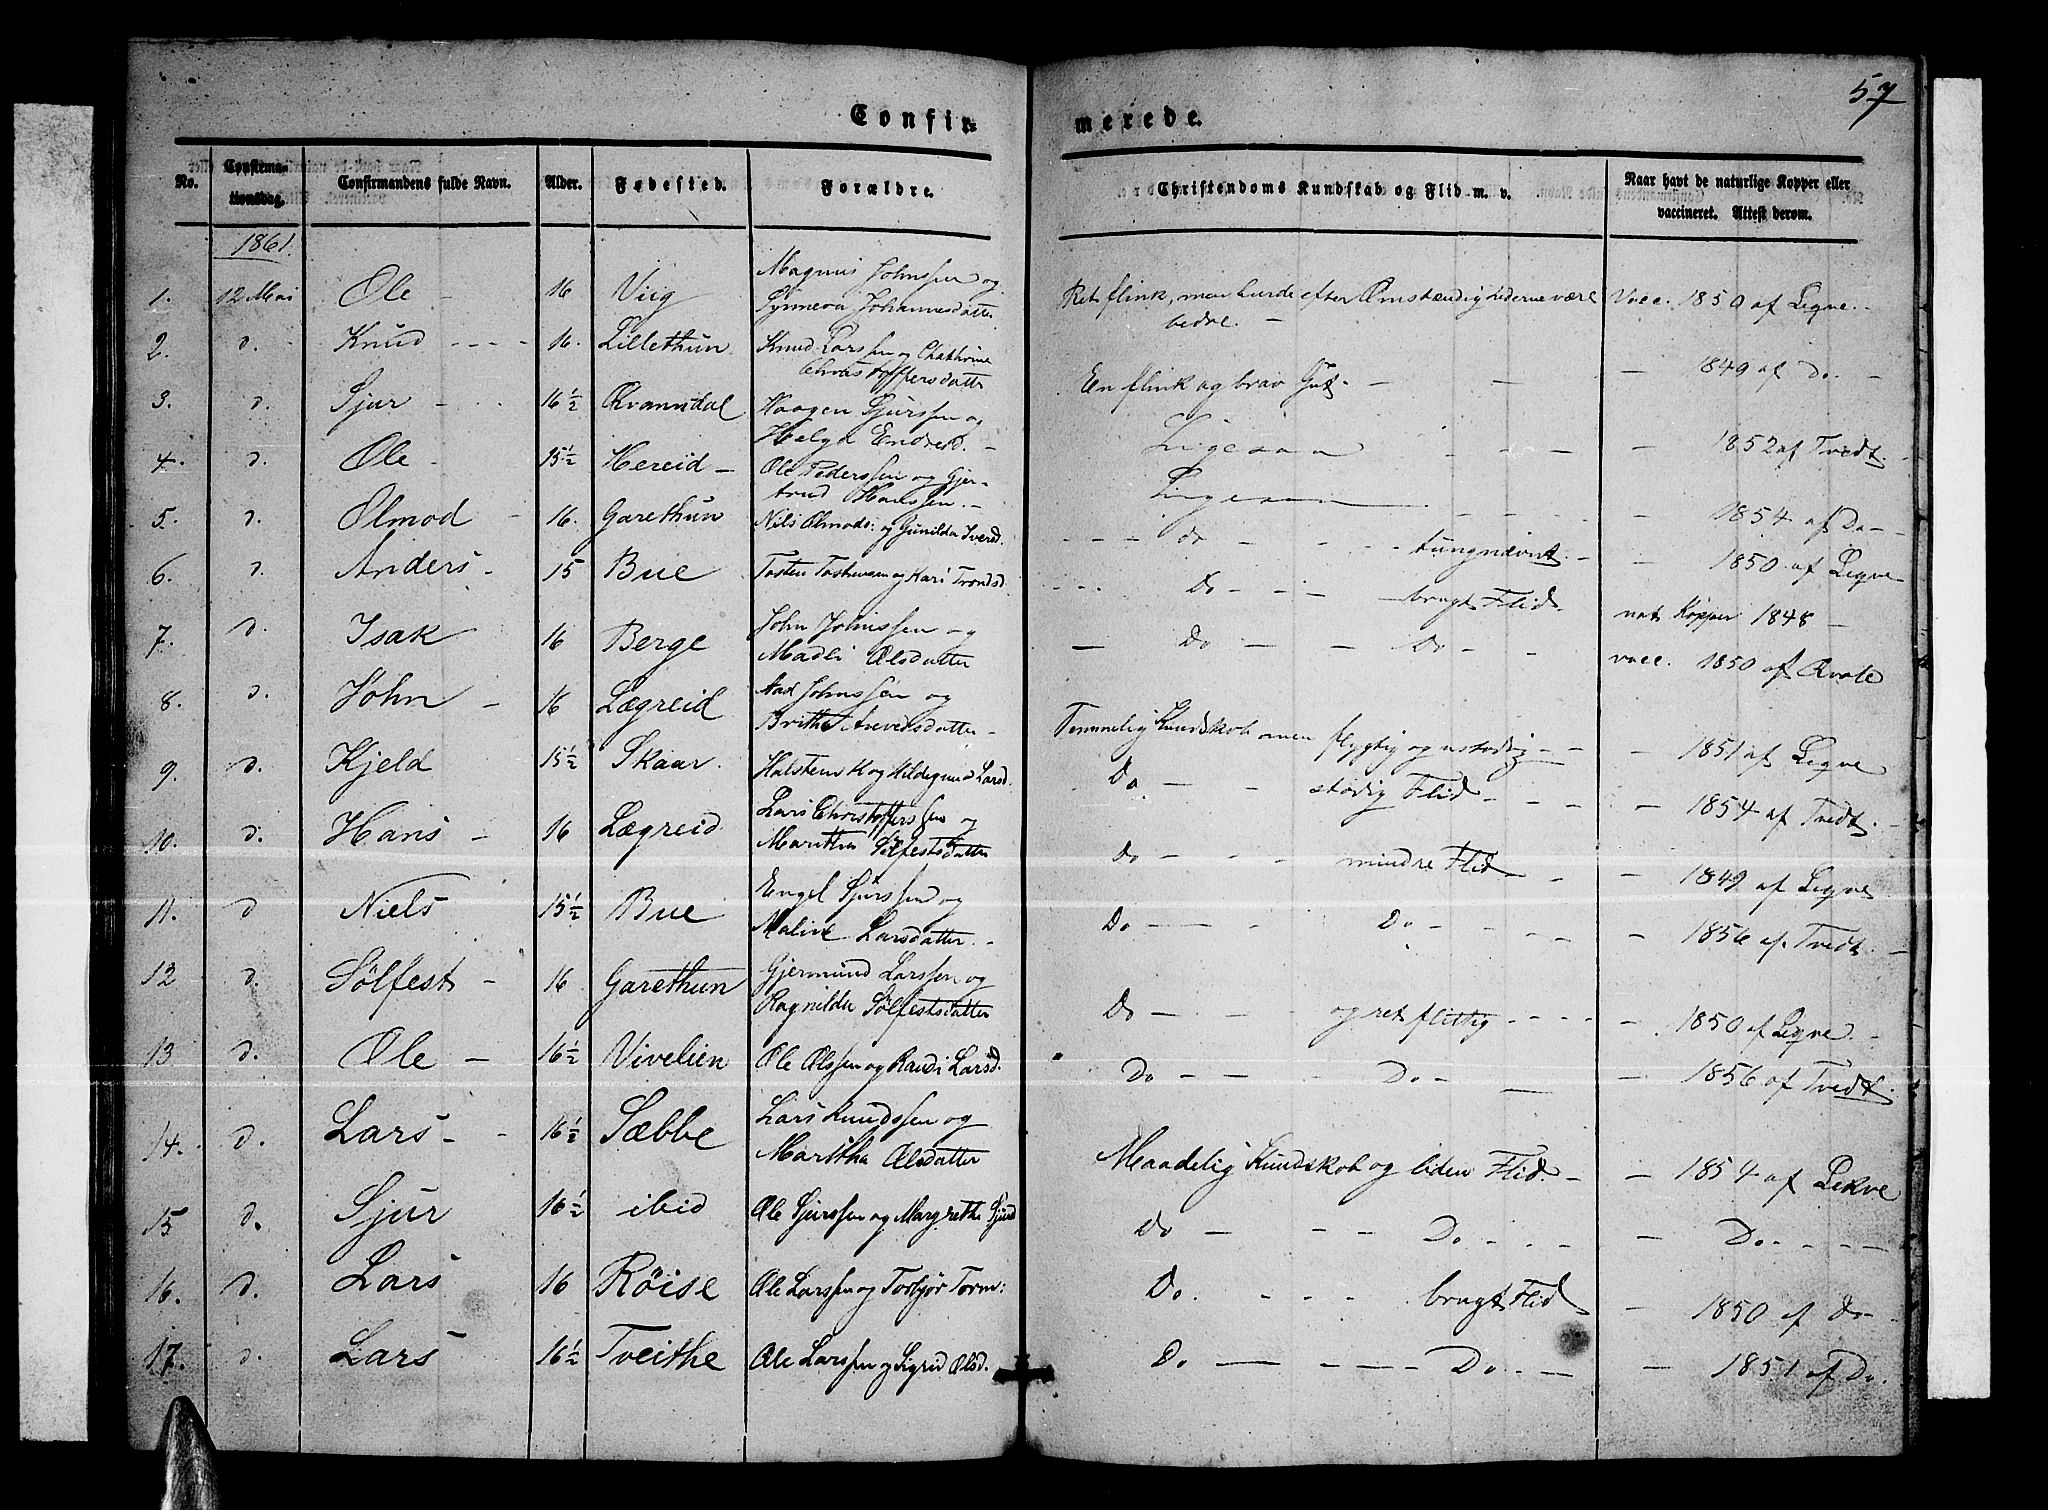 57
Confir-
merede.
No.
Confirma-
tionsdag.
Confirmandens fulde Navn.
Alder.
Fødested.
Forældre.
Christendoms Kundskab og Flid m. v.
Naar havt de naturlige Kopper eller
vaccineret. Attest derom.
1861.
1. 12 Mai Ole 16 Viig Magnus Johnssen og
Synneva Johannesdatter
Ret flink, men burde efter Omstændighederne være
bedre.
Vacc. 1850 af Legve
2. d. Knud 16. Lillethun Knud Larssen og Chathrine
Christoffersdatter
En flink og brav Gut. 1849 af Do
3. d. Sjur 16½ Qvanndal Haagen Sjurssen og
Helga Endresd.
Ligesaa 1852 af Tvedt.
4. d. Ole 15½ Hereid Ole Pederssen og Gjer-
trud Hanssen.
Ligesaa 1854 af Do
5. d. Olmod 16. Garethun Nils Olmods: og Gunilda Iversd.
do tungnævnt. 1850 af Legve
6. d. Anders 15 Bue Tosten Tostenssen og Kari Trondsd.
Do brugt Flid nat. Kopper 1848
7. d. Isak 16 Berge John Johnssen og
Madli Olsdatter
Do Do vacc. 1850 af Qvale
8. d. John 16 Lægreid Aad Johnssen og
Britha Arvedsdatter
Temmelig Kundskab men flygtig og ustadig 1851 af Legve
9. d. Kjeld 15½ Skaar Halsten K og Hildegund Larsd.
Do stadig Flid 1854 af Tvedt.
10. d. Hans 16 Lægreid Lars Christofferssen og
Maritha Sølfestsdatter
Do mindre Flid 1849 af Legve
11. d Niels 15½ Bue Engel Sjurssen og
Maline Larsdatter.
Do Do 1856 af Tvedt.
12 d. Sølfest 16 Garethun Gjermund Larssen og
Ragnilda Sølfestsdatter
Do og ret flittig 1850 af Legve.
13 d. Ole 16½ Vivelien Ole Olssen og Randi Larsd.
Do Do 1856 af Tvedt.
14. d. Lars 16½ Sæbbe Lars Knudssen og
Maritha Olsdatter
Maadelig Kundskab og liden Flid. 1854 af Lekve
15 d. Sjur 16½ ibid Ole Sjurssen og Margrethe Sjursd
Do Do Do
16. d. Lars 16 Røise Ole Larssen og Torbjør Torm:
Do. brugt Flid 1850 af Do
17. d. Lars 16½ Tveithe Ole Larssen og Sigrid Olsd.
Do Do 1851 af Do.